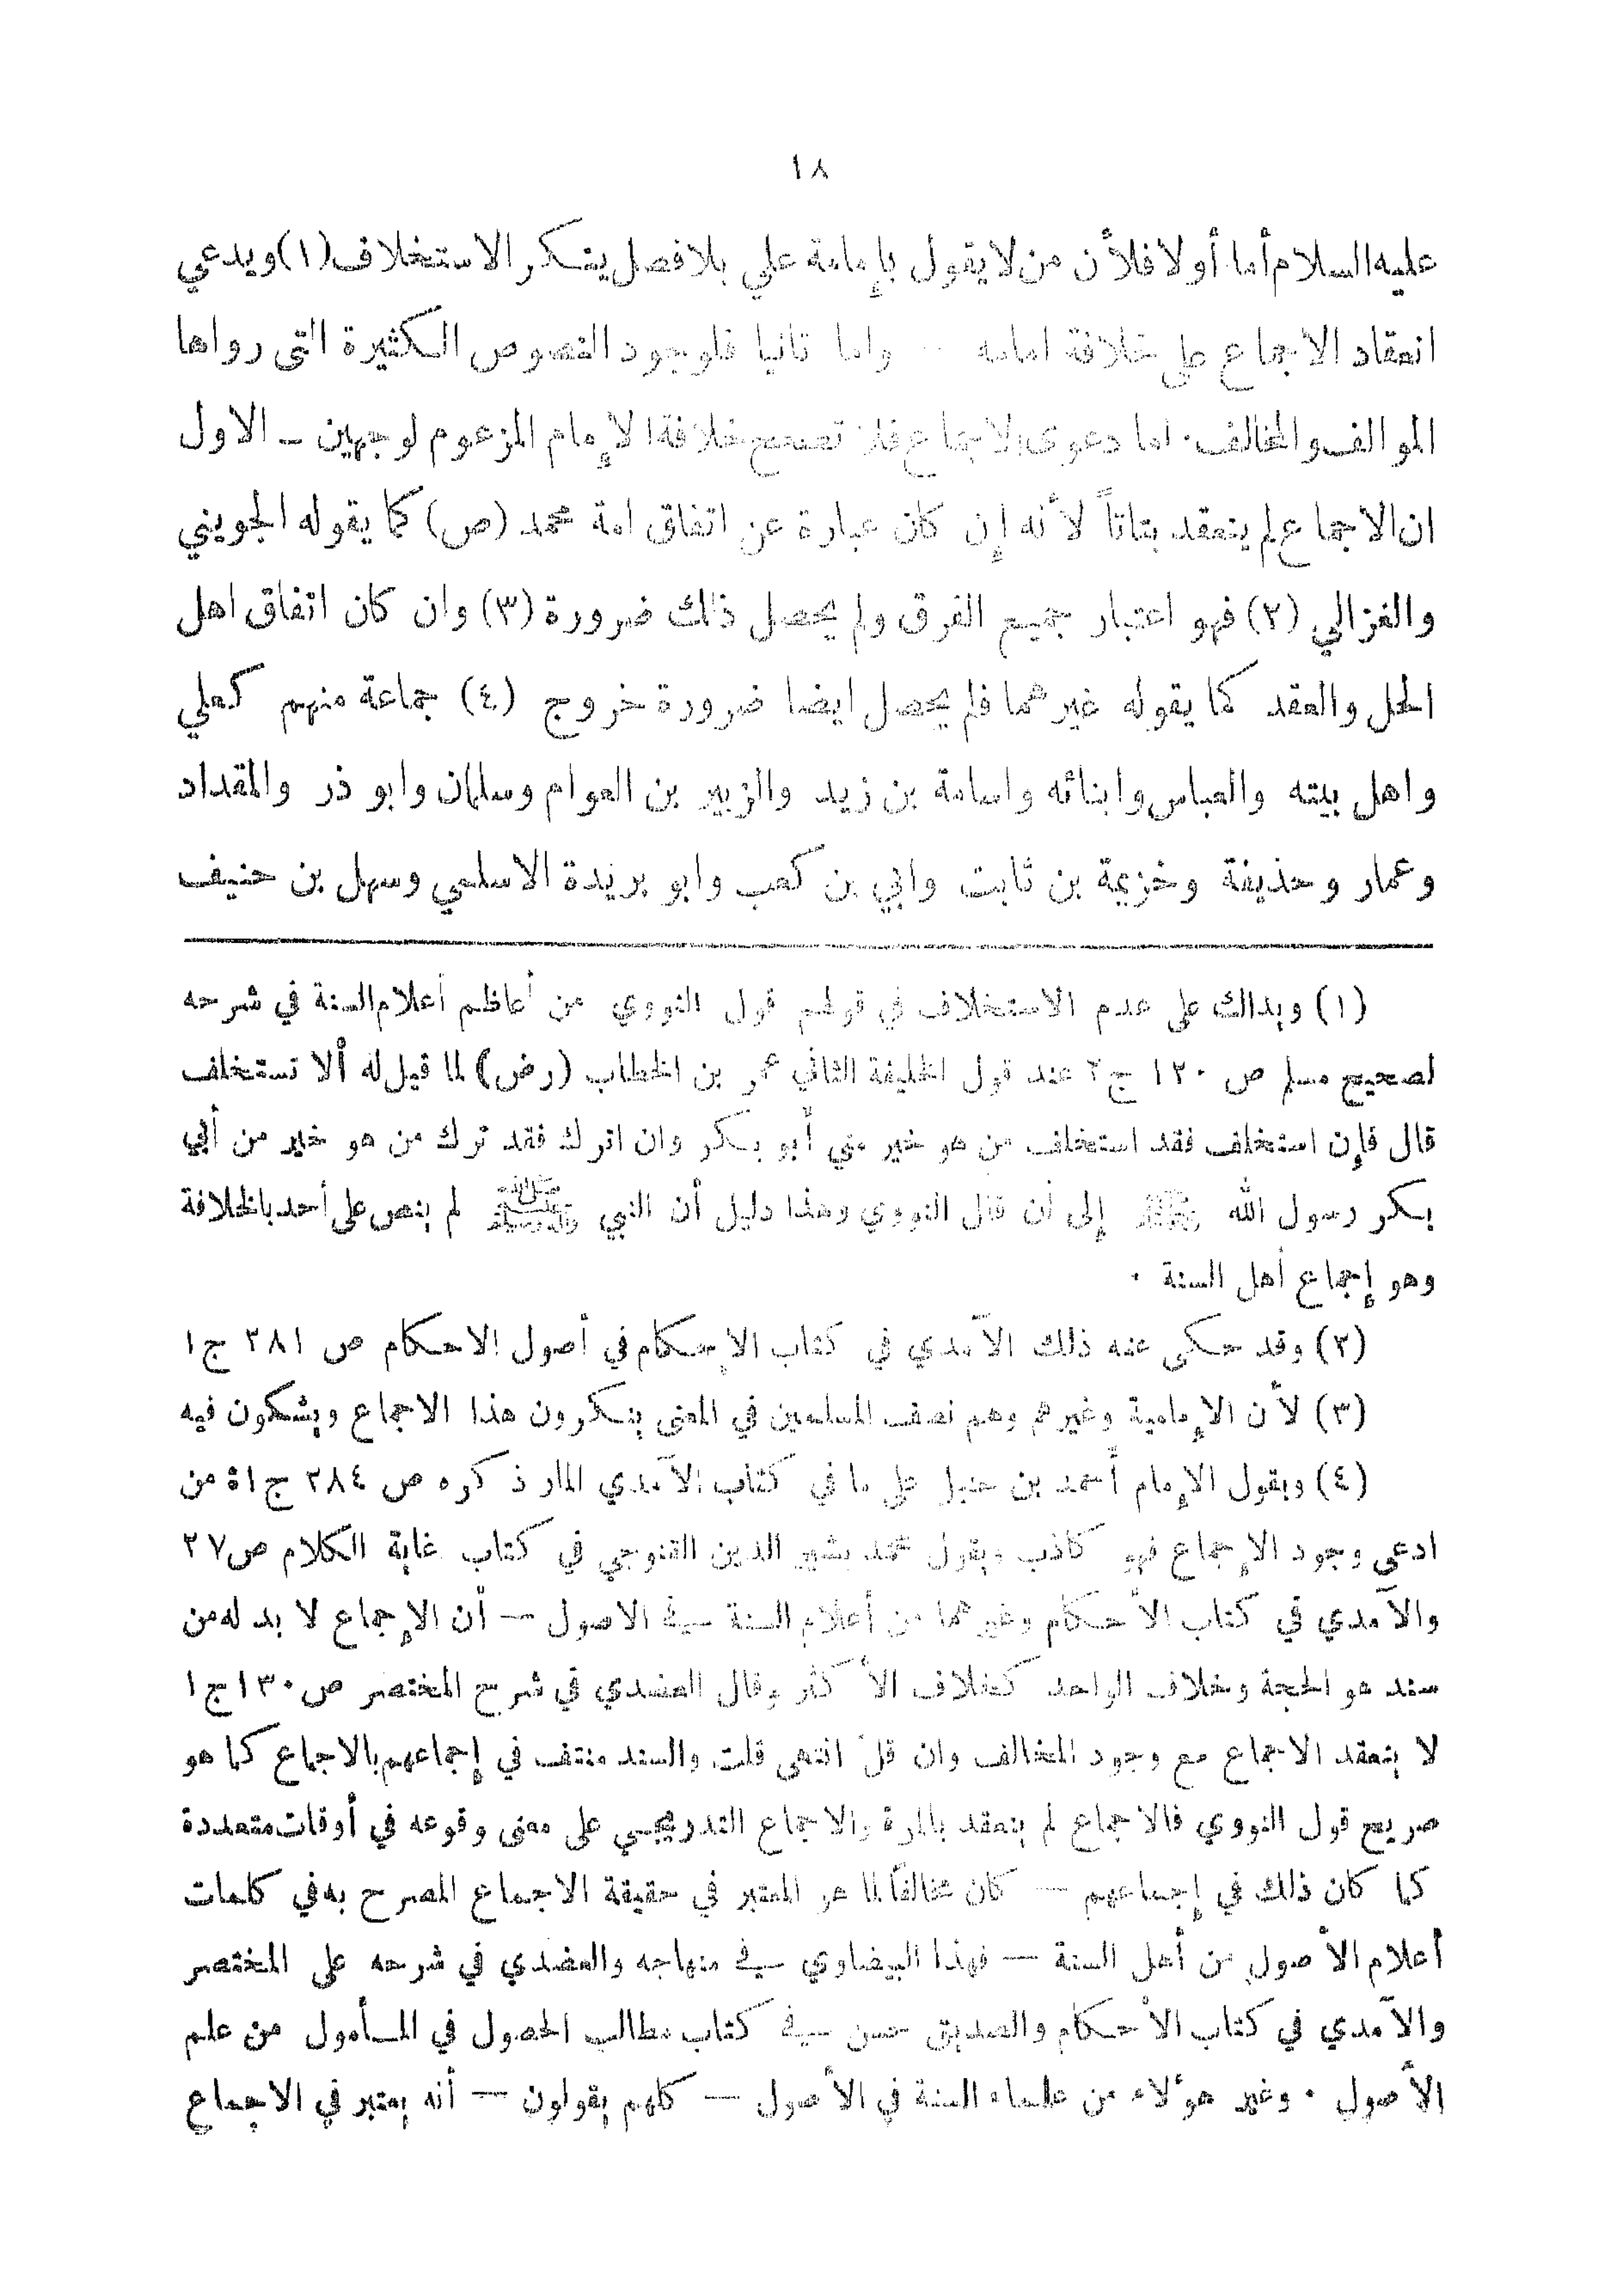 ١٨
عليه السلام أما أولا فلأن من لا يقول بإمامة علي بلا فصل ينكر الاستخلاف (١) ويدعي
انعقاد الاجماع على خلافة امامه — واما ثانيا فلوجود النصوص الكثيرة التى رواها
الموالف والمخالف. اما دعوى الاجماع فلا تصحح خلافة الإمام المزعوم لوجهين – الاول
ان الاجماع لم ينعقد بتاتاً لأنه إن كان عبارة عن اتفاق امة محمد (ص) كما يقوله الجويني
والغزالي (٢) فهو اعتبار جميع الفرق ولم يحصل ذلك ضرورة (٣) وان كان اتفاق اهل
الحل والعقد كما يقوله غيرهما فلم يحصل ايضا ضرورة خروج (٤) جماعة منهم كعلي
واهل بيته والعباس وابنائه واسامة بن زيد والزبير بن العوام وسلمان وابو ذر والمقداد
وعمار وحذيفة وخزيمة بن ثابت وابي بن كعب وابو بريدة الاسلمي وسهل بن حنيف
(١) ويدلك على عدم الاستخلاف في قولهم قول النووي من أعاظم أعلام السنة في شرحه
لصحيح مسلم ص ١٢٠ ج ٢ عند قول الخليفة الثاني عمر بن الخطاب (رض) لما قيل له ألا تستخلف
قال فإن استخلف فقد استخلف من هو خير مني أبو بكر وان اترك فقد ترك من هو خير من أبي
بكر رسول الله ﷺ إلى أن قال النووي وهذا دليل أن النبي ﷺ لم ينص على أحد بالخلافة
وهو إجماع أهل السنة .
(٢) وقد حكى عنه ذلك الآمدي في كتاب الإحكام في أصول الاحكام ص ٢٨١ ج ١
(٣) لأن الإمامية وغيرهم وهم نصف المسلمين في المعنى ينكرون هذا الاجماع ويشكون فيه
(٤) ويقول الإمام أحمد بن حنبل على ما في كتاب الآمدي المار ذكره ص ٢٨٤ ج ١ ة من
ادعى وجود الإجماع فهو كاذب ويقول محمد بشير الدين القنوجي في كتاب غاية الكلام ص ٢٧
والآمدي في كتاب الأحكام وغيرهما من أعلام السنة في الاصول — أن الإجماع لا بد له من
سند هو الحجة وخلاف الواحد كخلاف الأكثر وقال العضدي في شرح المختصر ص ١٣٠ ج ١
لا ينعقد الاجماع مع وجود المخالف وان قل انتهى قلت والسند منتف في إجماعهم بالاجماع كما هو
صريح قول النووي فالاجماع لم ينعقد بالمرة والاجماع التدريجي على معنى وقوعه في أوقات متعددة
كما كان ذلك في إجماعهم — كان مخالفاً لما هو المعتبر في حقيقة الاجماع المصرح به في كلمات
أعلام الأصول من أهل السنة — فهذا البيضاوي في منهاجه والعضدي في شرحه على المختصر
والآمدي في كتاب الأحكام والصديق حسن في كتاب مطالب الحصول في المـأمول من علم
الأصول . وغير هؤلاء من علماء السنة في الأصول — كلهم يقولون — أنه يعتبر في الاجماع